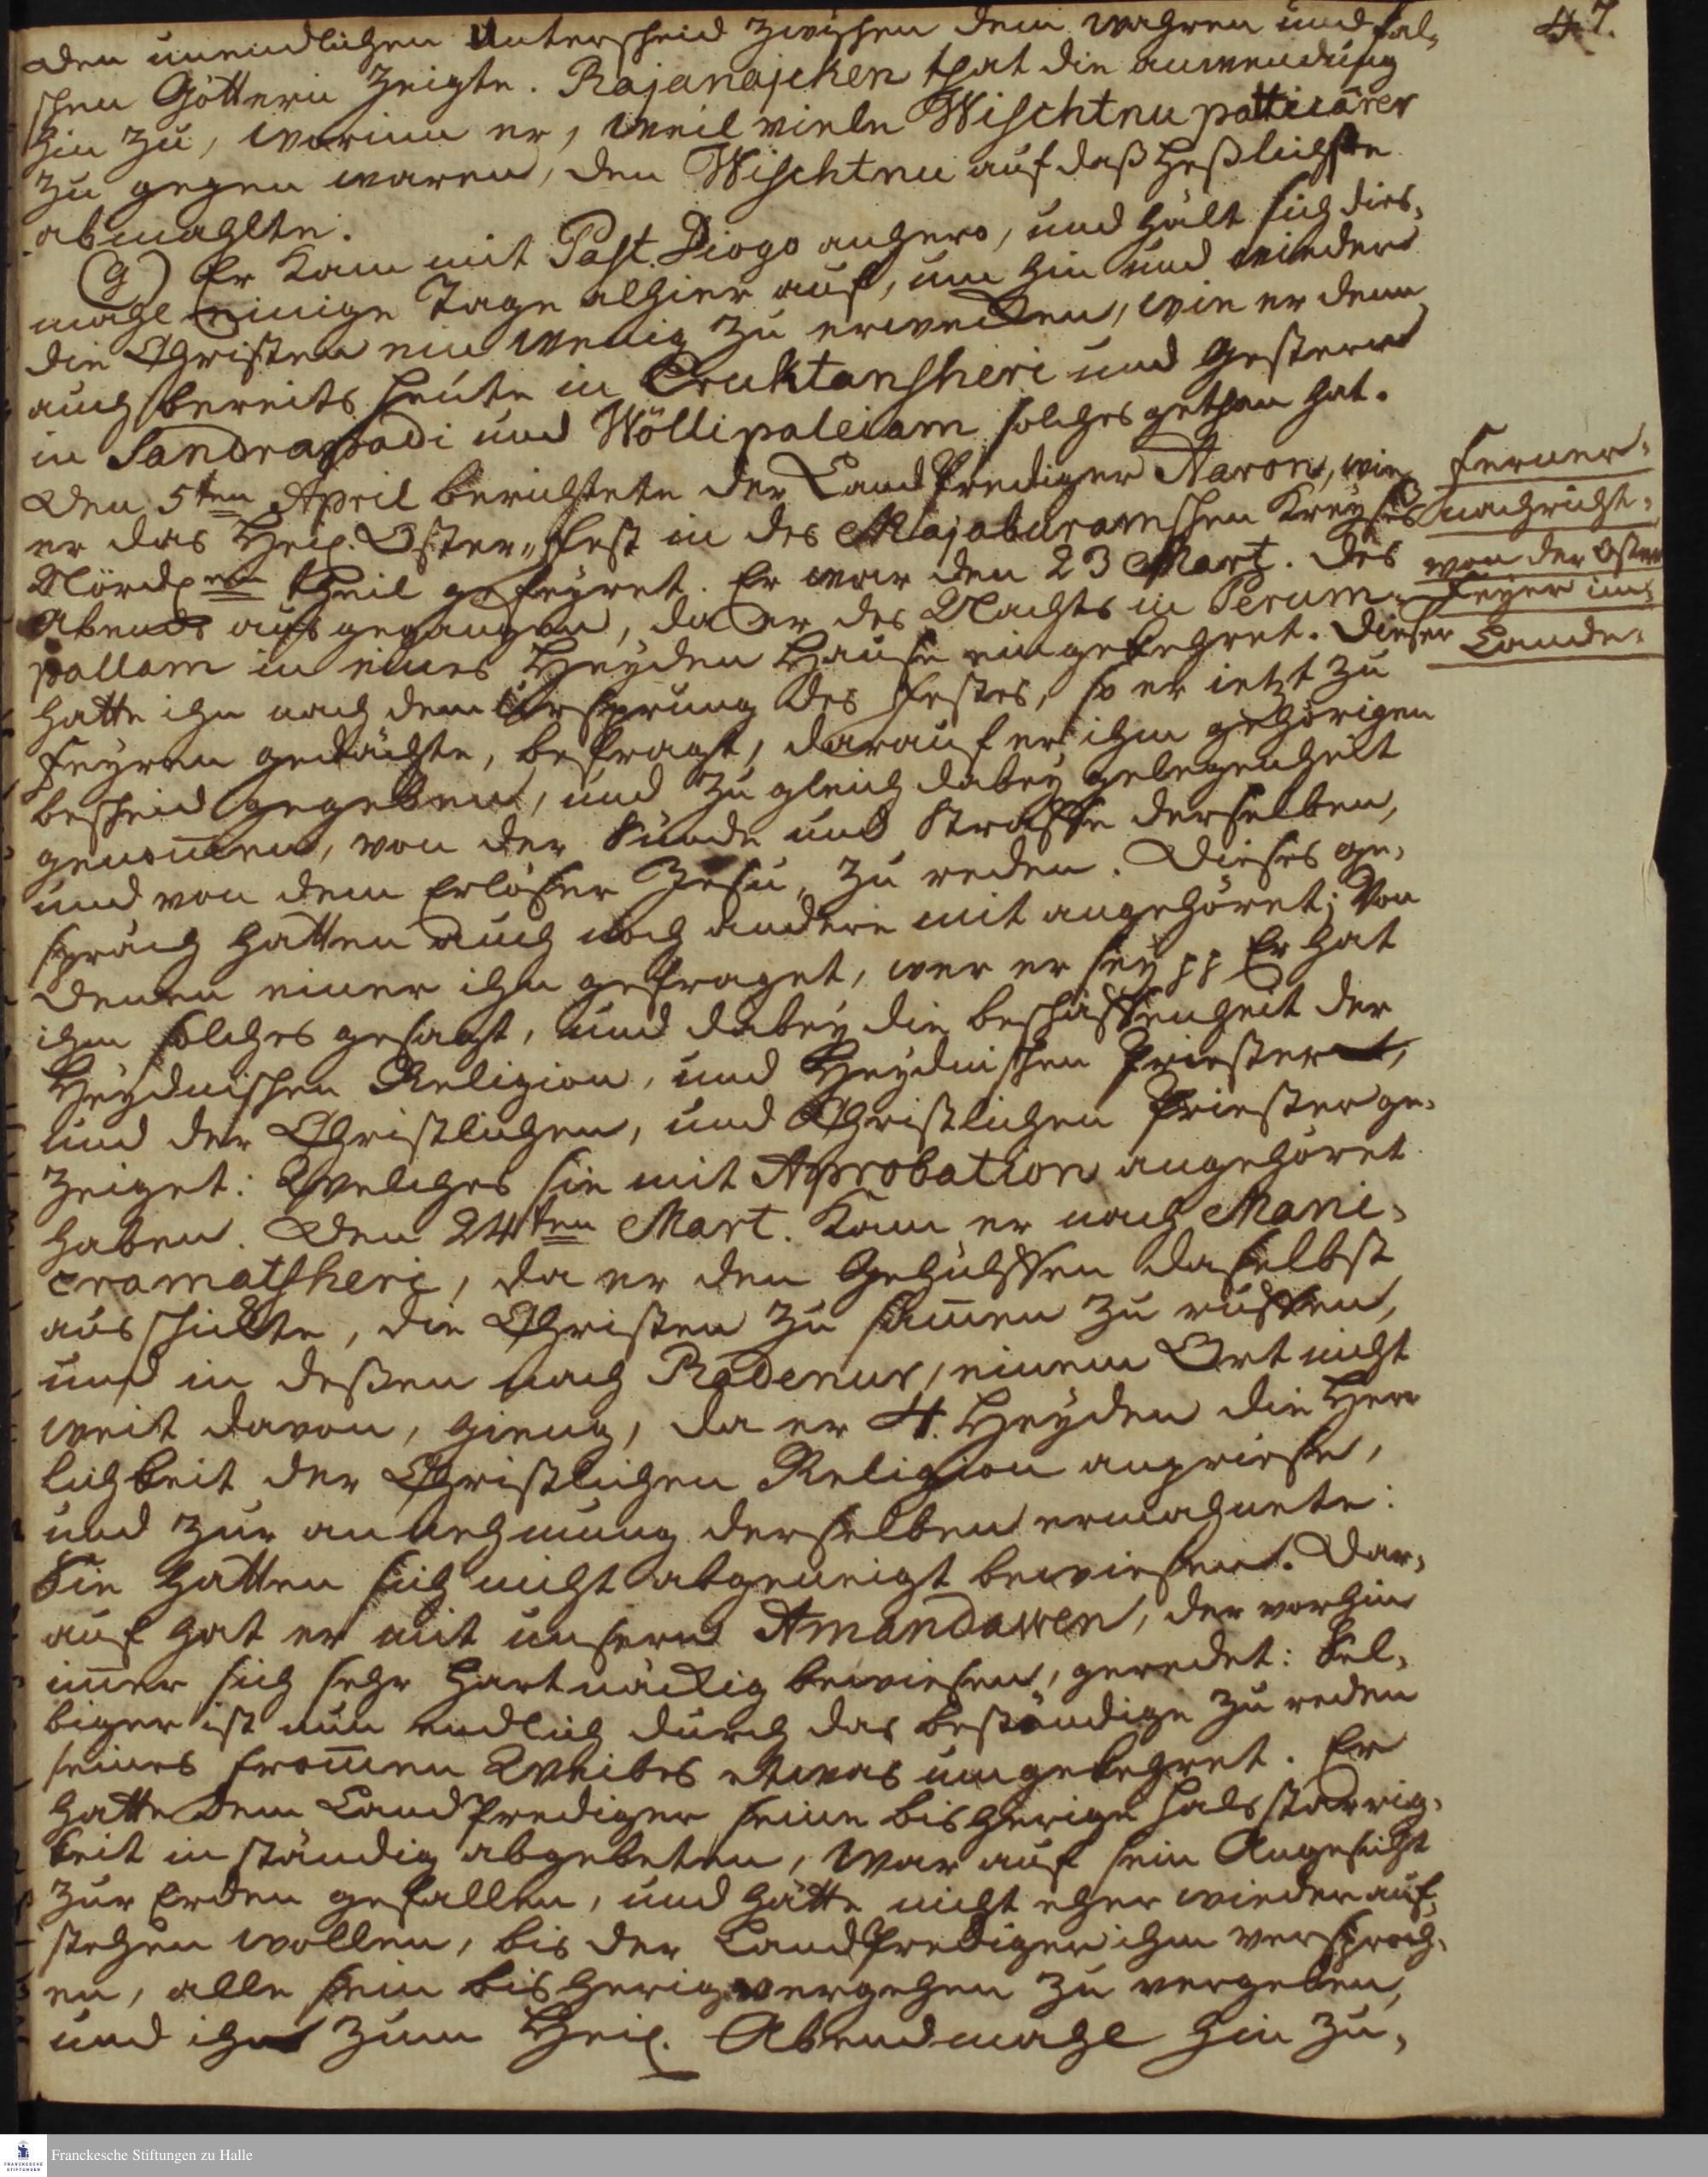 47.
den unendlichen Unterscheid zwischen dem wahren und fal-
schen Göttern zeigte. Rajanajcken that die anwendung
hin zu, worinn er, weil viele Wischtnu patticärer
zu gegen waren, den Wischtnu auf daß heßlichste
abmahlte.
(g) Er kam mit Past. Diogo anhero, und hält sich dies-
mahl einige Tage alhier auf, um hin und wieder
die Christen ein wenig zu erwecken, wie er denn
auch bereits heute in Cruktansheri und gestern
in Sandrapadi und Wöllipaleiam solches gethan hat.
Den 5ten April berichtete der Landprediger Aaron, wie
er das Heil. Oster-Fest in des Majaburamschen Kreyses
Nördl.en theil gefeyret. Er war den 23 Mart. des
Abends ausgegangen, da er des Nachts in Perum-
pallam in eines Heyden Hause eingekehret. Dieser
hatte ihn nach dem Ursprung des Festes, so er ietzt zu
feyren gedächte, befragt, darauf er ihm gehörigen
bescheid gegeben, und zu gleich dabey gelegenheit
genom̅en, von der Sünde und Straffe derselben,
und von dem Erlöser Jesu, zu reden. Dieses ge-
spräch hatten auch noch andere mit angehöret; Von
denen einer ihn gefraget, wer er sey pp Er hat
ihm solches gesagt, und dabey die beschaffenheit der
Heydnischen Religion, und Heydnischen Priester,
und der Christlichen, und Christlichen Priester ge-
zeiget: Welches sie mit Aprobation angehöret
haben. Den 24ten Mart. kam er nach Mani-
cramatsheri, da er den Gehülffen daselbst
ausschickte, die Christen zu sam̅en zu ruffen,
und in deßen nach Radenur, einem Ort nicht
weit davon, gieng, da er 4. Heyden die Herr
lichkeit der Christlichen Religion anpriese,
und zur annehmung derselben ermahnete:
Sie hatten sich nicht abgeneigt bewiesen. Dar-
auf hat er mit unserm Amandawen, der vorhin
im̅er sich sehr hartnäckig bewiesen, geredet: Sel-
biger ist nun endlich durch das beständige zu reden
seines from̅en Weibes etwas umgekehret. Er
hatte dem Landprediger seine bisherige halsstarrig-
keit inständig abgebeten, war auf sein Angesicht
zur Erden gefallen, und hätte nicht eher wieder auf-
stehen wollen, bis der Landprediger ihm versproch-
en, alle sein bisherig vergehen zu vergeben,
und ihn zum Heil. Abendmahl hin zu-
Ferner-
nachricht-
von der Oster
Feyer im-
Lande-
Franckesche Stiftungen zu Halle